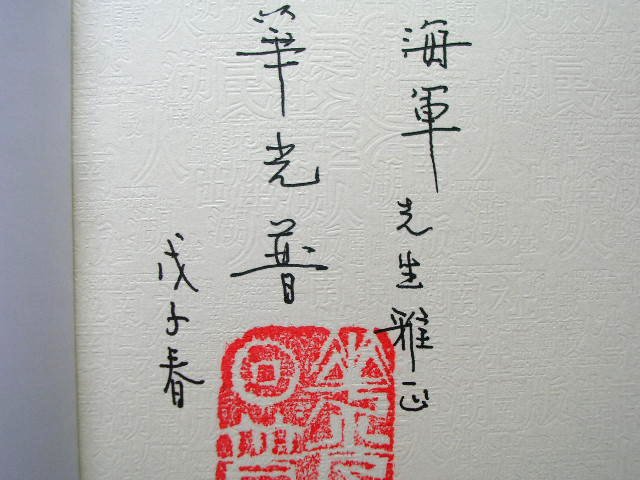 海軍先生雅正
華光普
戊子春